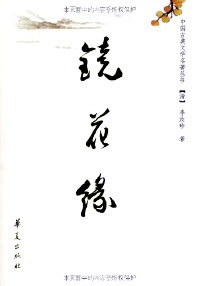 本页面中的内容受版权保护
中国古典文学名著丛书
【清】 李汝珍 著
镜花缘
华夏出版社
本页面中的内容受版权保护